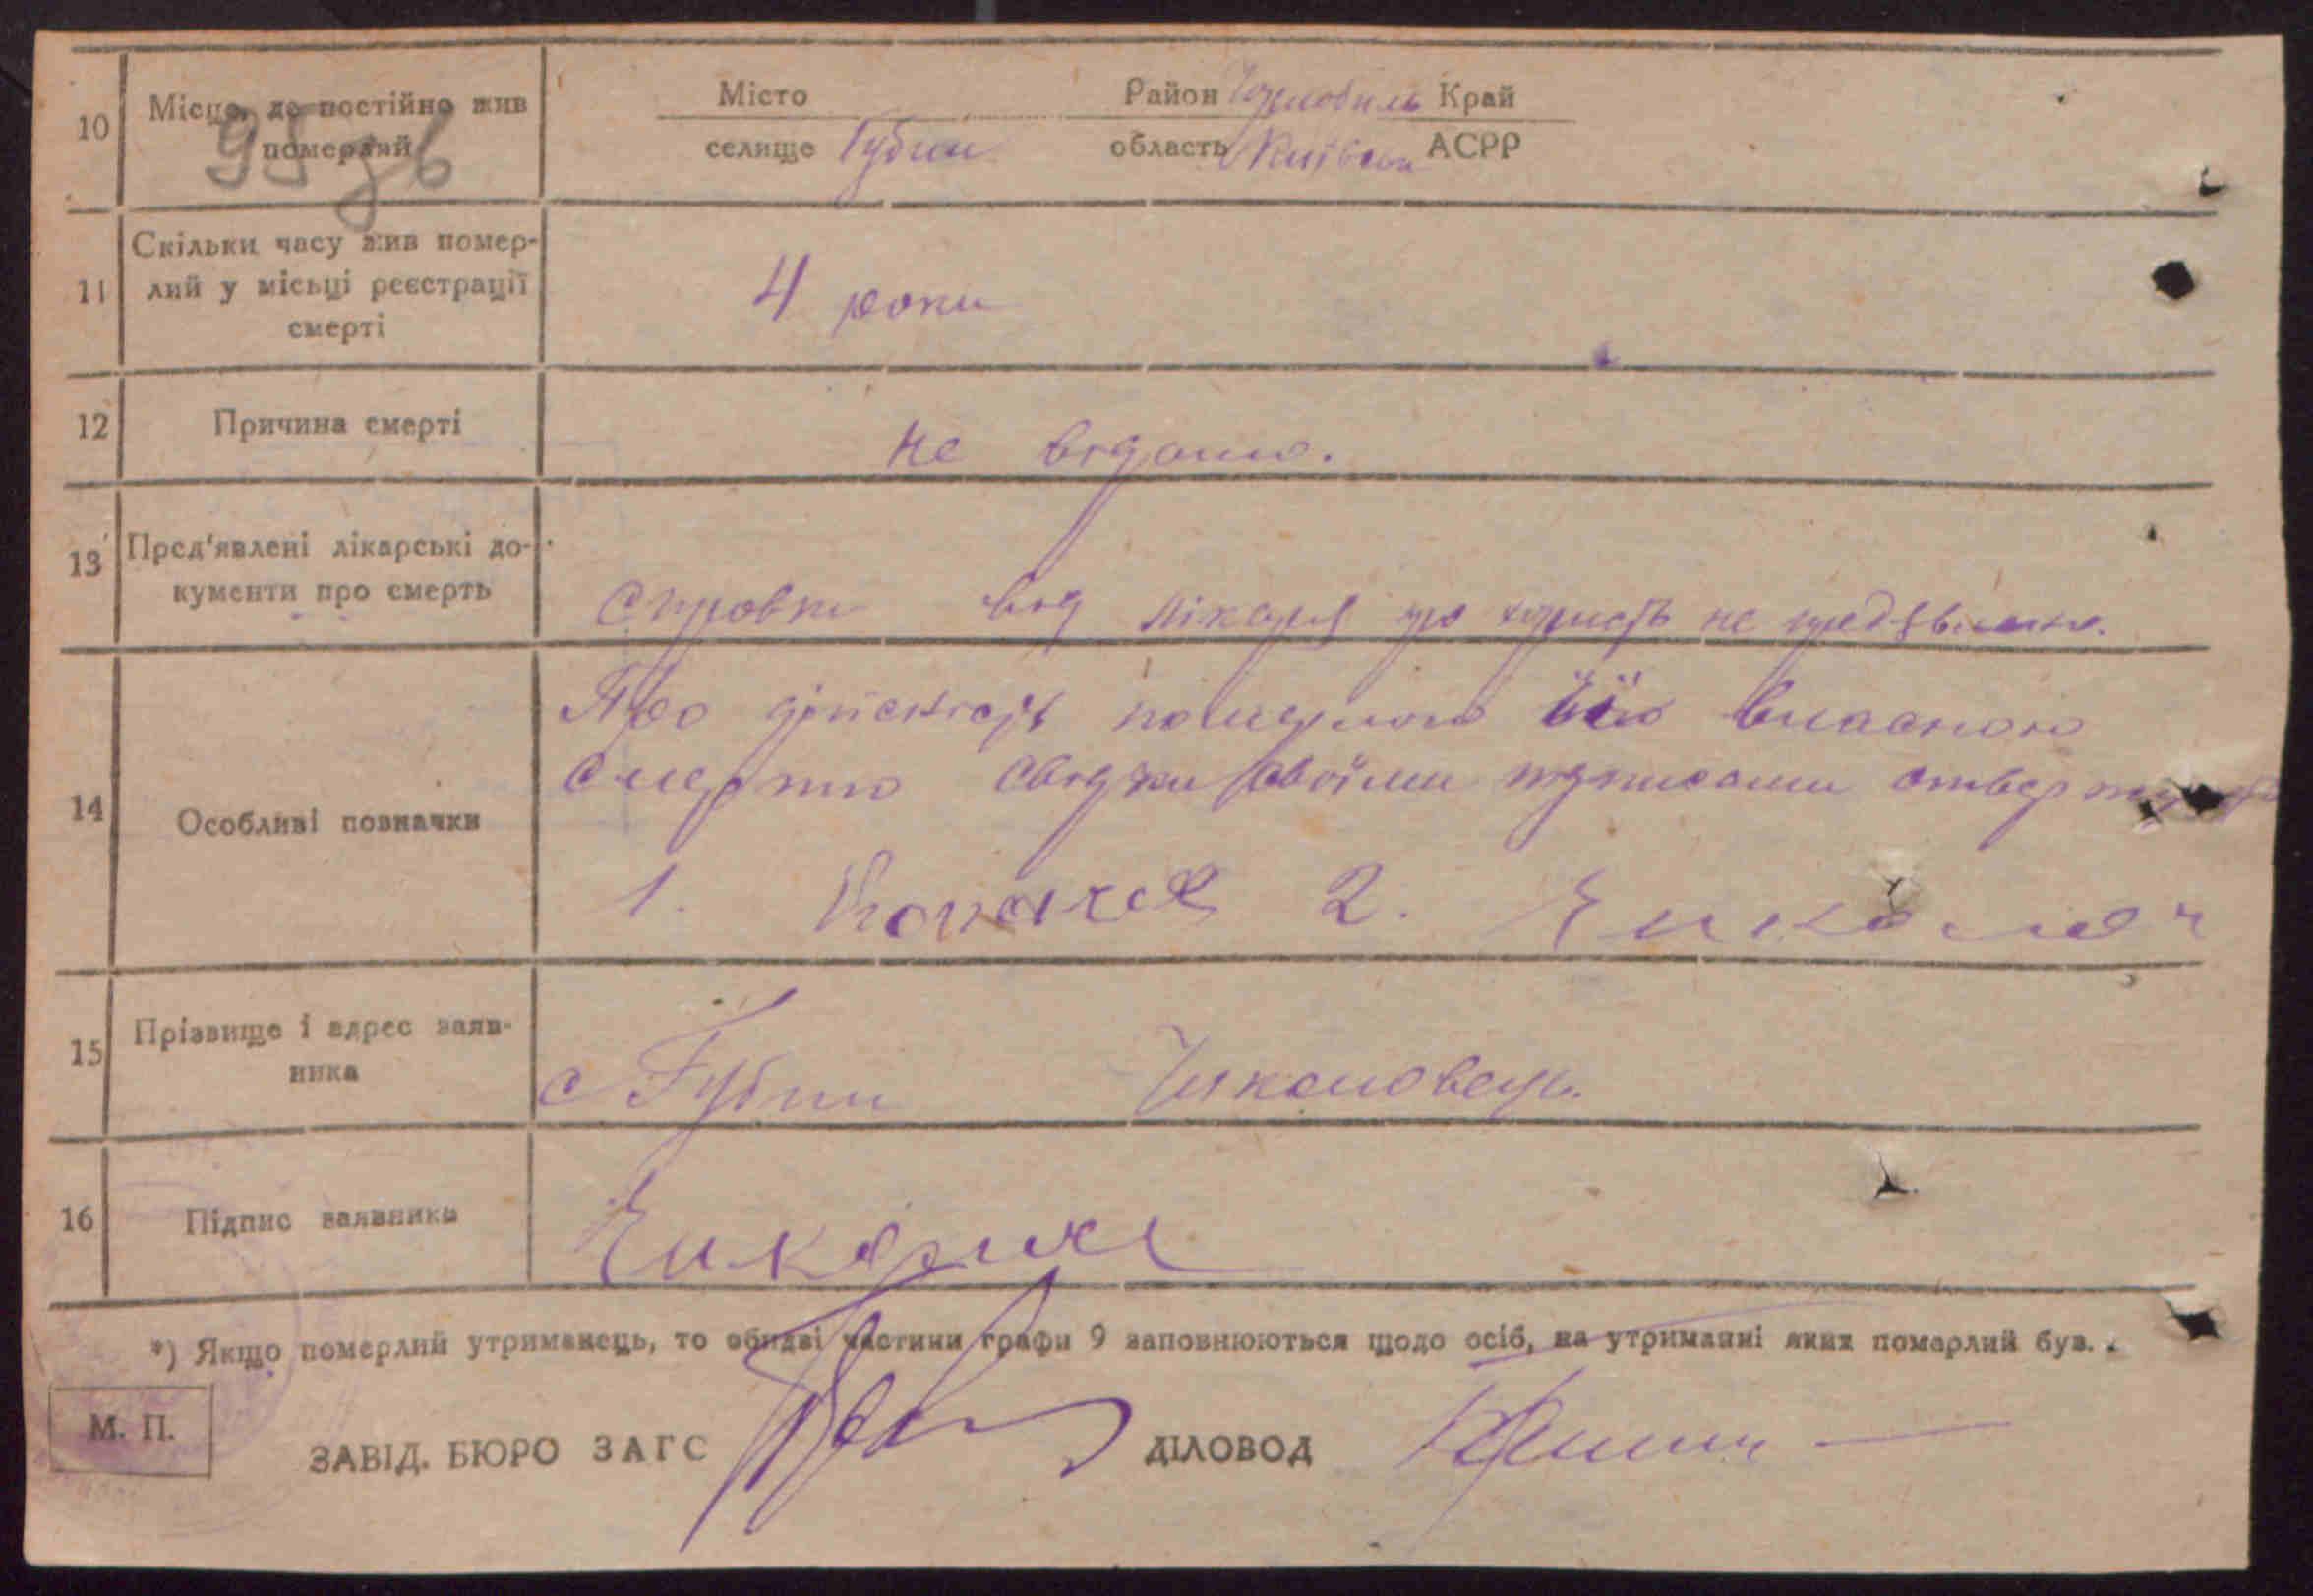 10 Місце, де постійно жив померлий
95 зв
Місто
селище Губин
Район Чорнобиль Край
область Київська АСРР
11 Скільки часу жив помер-
лий у місьці реєстрації
смерті
4 роки
12 Причина смерті
не відомо.
13 Пред'явлені лікарські до-
кументи про смерть
Справки від лікаря про смерть не
14 Особливі позначки
Про дійсність власною
смертю свідки своїми підписами
1. 2.
15 Прізвище і адрес заяв-
ника
с Губин
16 Підпис заявника
*) Якщо померлий утриманець, то обидві частини графи 9 заповнюються щодо осіб, на утриманні яких померлий був.
М. П.
ЗАВІД. БЮРО ЗАГС
ДІЛОВОД